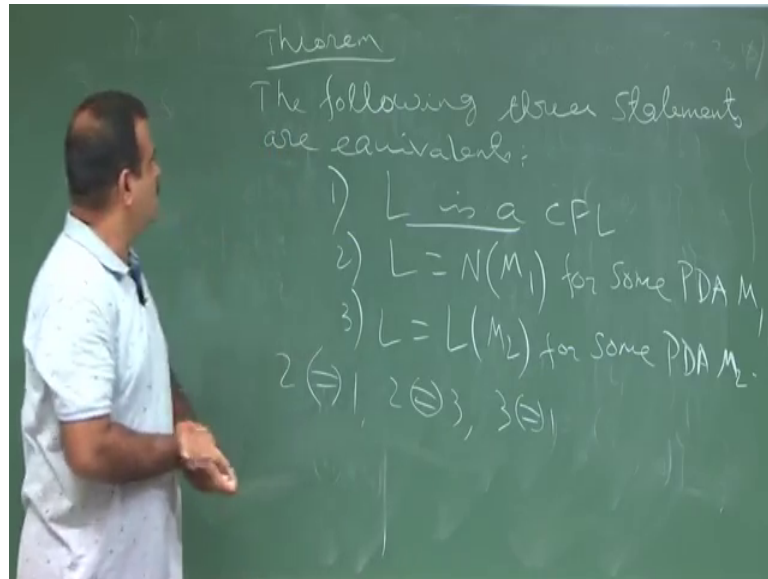 Theorem
The following three Statements
are equivalent:
1) L is a CFL
2) L = N(M₁) for some PDA M₁
3) L = L(M₂) for some PDA M₂.
2 ⇔ 1, 2 ⇔ 3, 3 ⇔ 1